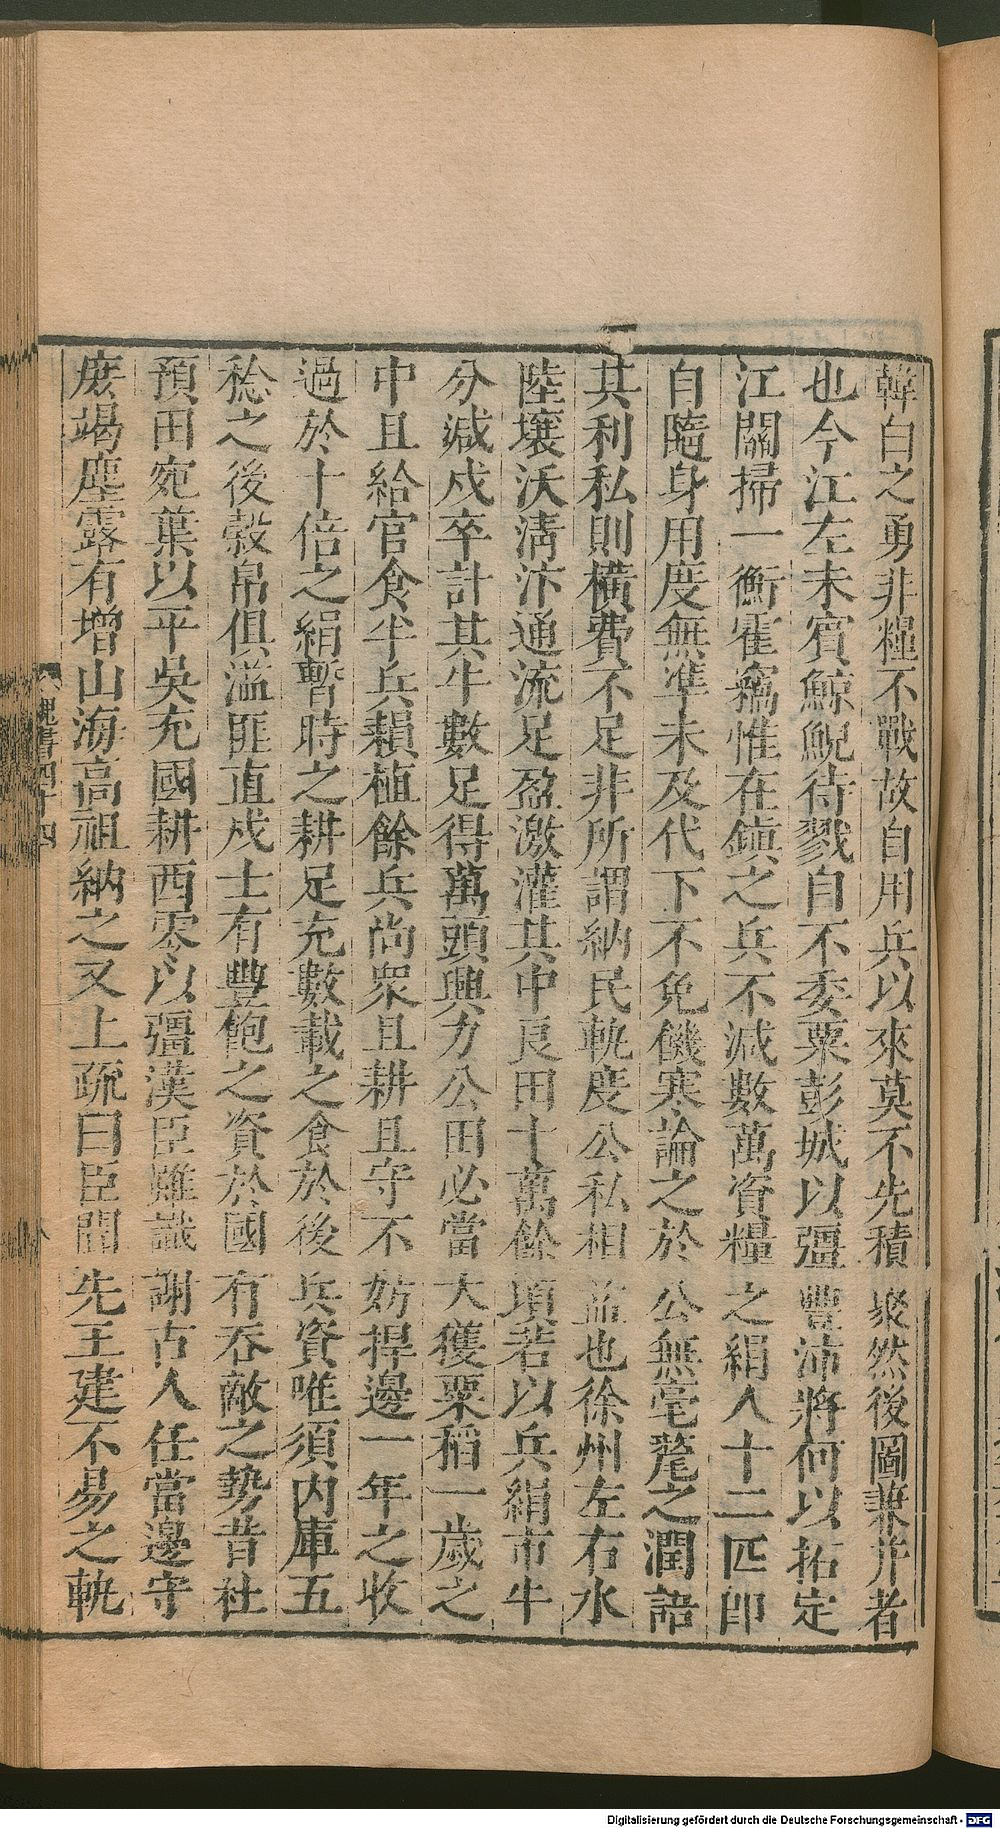 韓白之勇非糧不戰故自用兵以來莫不先積聚然後圖兼并者
也今江左未賓鯨鯢待戮自不委粟彭城以彊豐沛將何以拓定
江關掃一衡霍竊惟在鎮之兵不減數萬資糧之絹人十二匹即
自隨身用度無準未及代下不免饑寒論之於公無毫氂之潤語
其利私則橫費不足非所謂納民軌度公私相益也徐州左右水
陸壤沃清汴通流足盈激灌其中良田十萬餘頃若以兵絹市牛
分減戍卒計其牛數足得萬頭興力公田必當大獲粟稻一歲之
中且給官食半兵耘植餘兵尚衆且耕且守不妨捍邊一年之收
過於十倍之絹暫時之耕足充數載之食於後兵資唯須內庫五
稔之後穀帛俱溢匪直戍士有豐飽之資於國有吞敵之勢昔杜
預田宛葉以平吳充國耕西零以彊漢臣雖識謝古人任當邊守
庶竭塵露有增山海高祖納之又上疏曰臣聞先王建不易之軌
魏書四十四
八
Digitalisierung gefördert durch die Deutsche Forschungsgemeinschaft - DFG